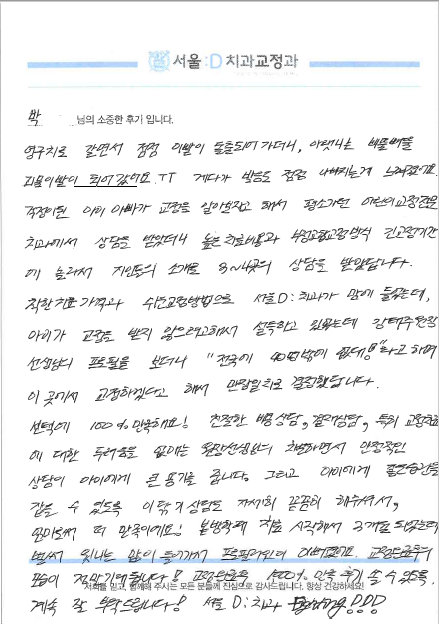 서울:D 치과교정과
박 님의 소중한 후기 입니다.
영구치로 갈면서 점점 이빨이 돌출되어가더니, 아랫니는
되어갔어요. TT 게다가 발음도 점점 나빠지는게 느껴졌어요.
걱정이된 아이 아빠가 교정을 알아보자고 해서 평소가던 어린이교정전문
치과에서 상담을 받았더니 높은 치료비용과 긴교정기간
에 놀라서 지인들의 소개로 3~4곳의 상담을 받았답니다.
착한치료가격과 쉬운교정방법으로 서울D:치과가 맘에 들었는데,
아이가 교정을 받지 않으려고해서 설득하고 있었는데
선생님의 프로필을 보더니 "전국에 40명밖에 없대!!"라고 하며
이곳에서 교정하겠다고 해서 만장일치로 결정했답니다.
선택에 100% 만족해요! 친절한 상담, 특히 교정치료
에 대한 두려움을 없애는 원장선생님의 차분하면서 안정적인
상담이 아이에게 큰 용기를 줍니다. 그리고 아이에게
갖을 수 있도록 이닦기 상담도 자세히 꼼꼼히 해주셔서,
엄마로써 더 만족이에요! 치료 시작해서 3개월 되었는데
벌써 윗니는 많이 들어가서 이뻐졌어요. 교정완료후의
모습이 저희를 믿고, 함께해 주시는 모든 분들께 진심으로 감사드립니다, 항상 건강하세요!
교정완료후 100% 만족 후기 쓸 수 있도록,
계속 잘 부탁드립니다! 서울 D:치과